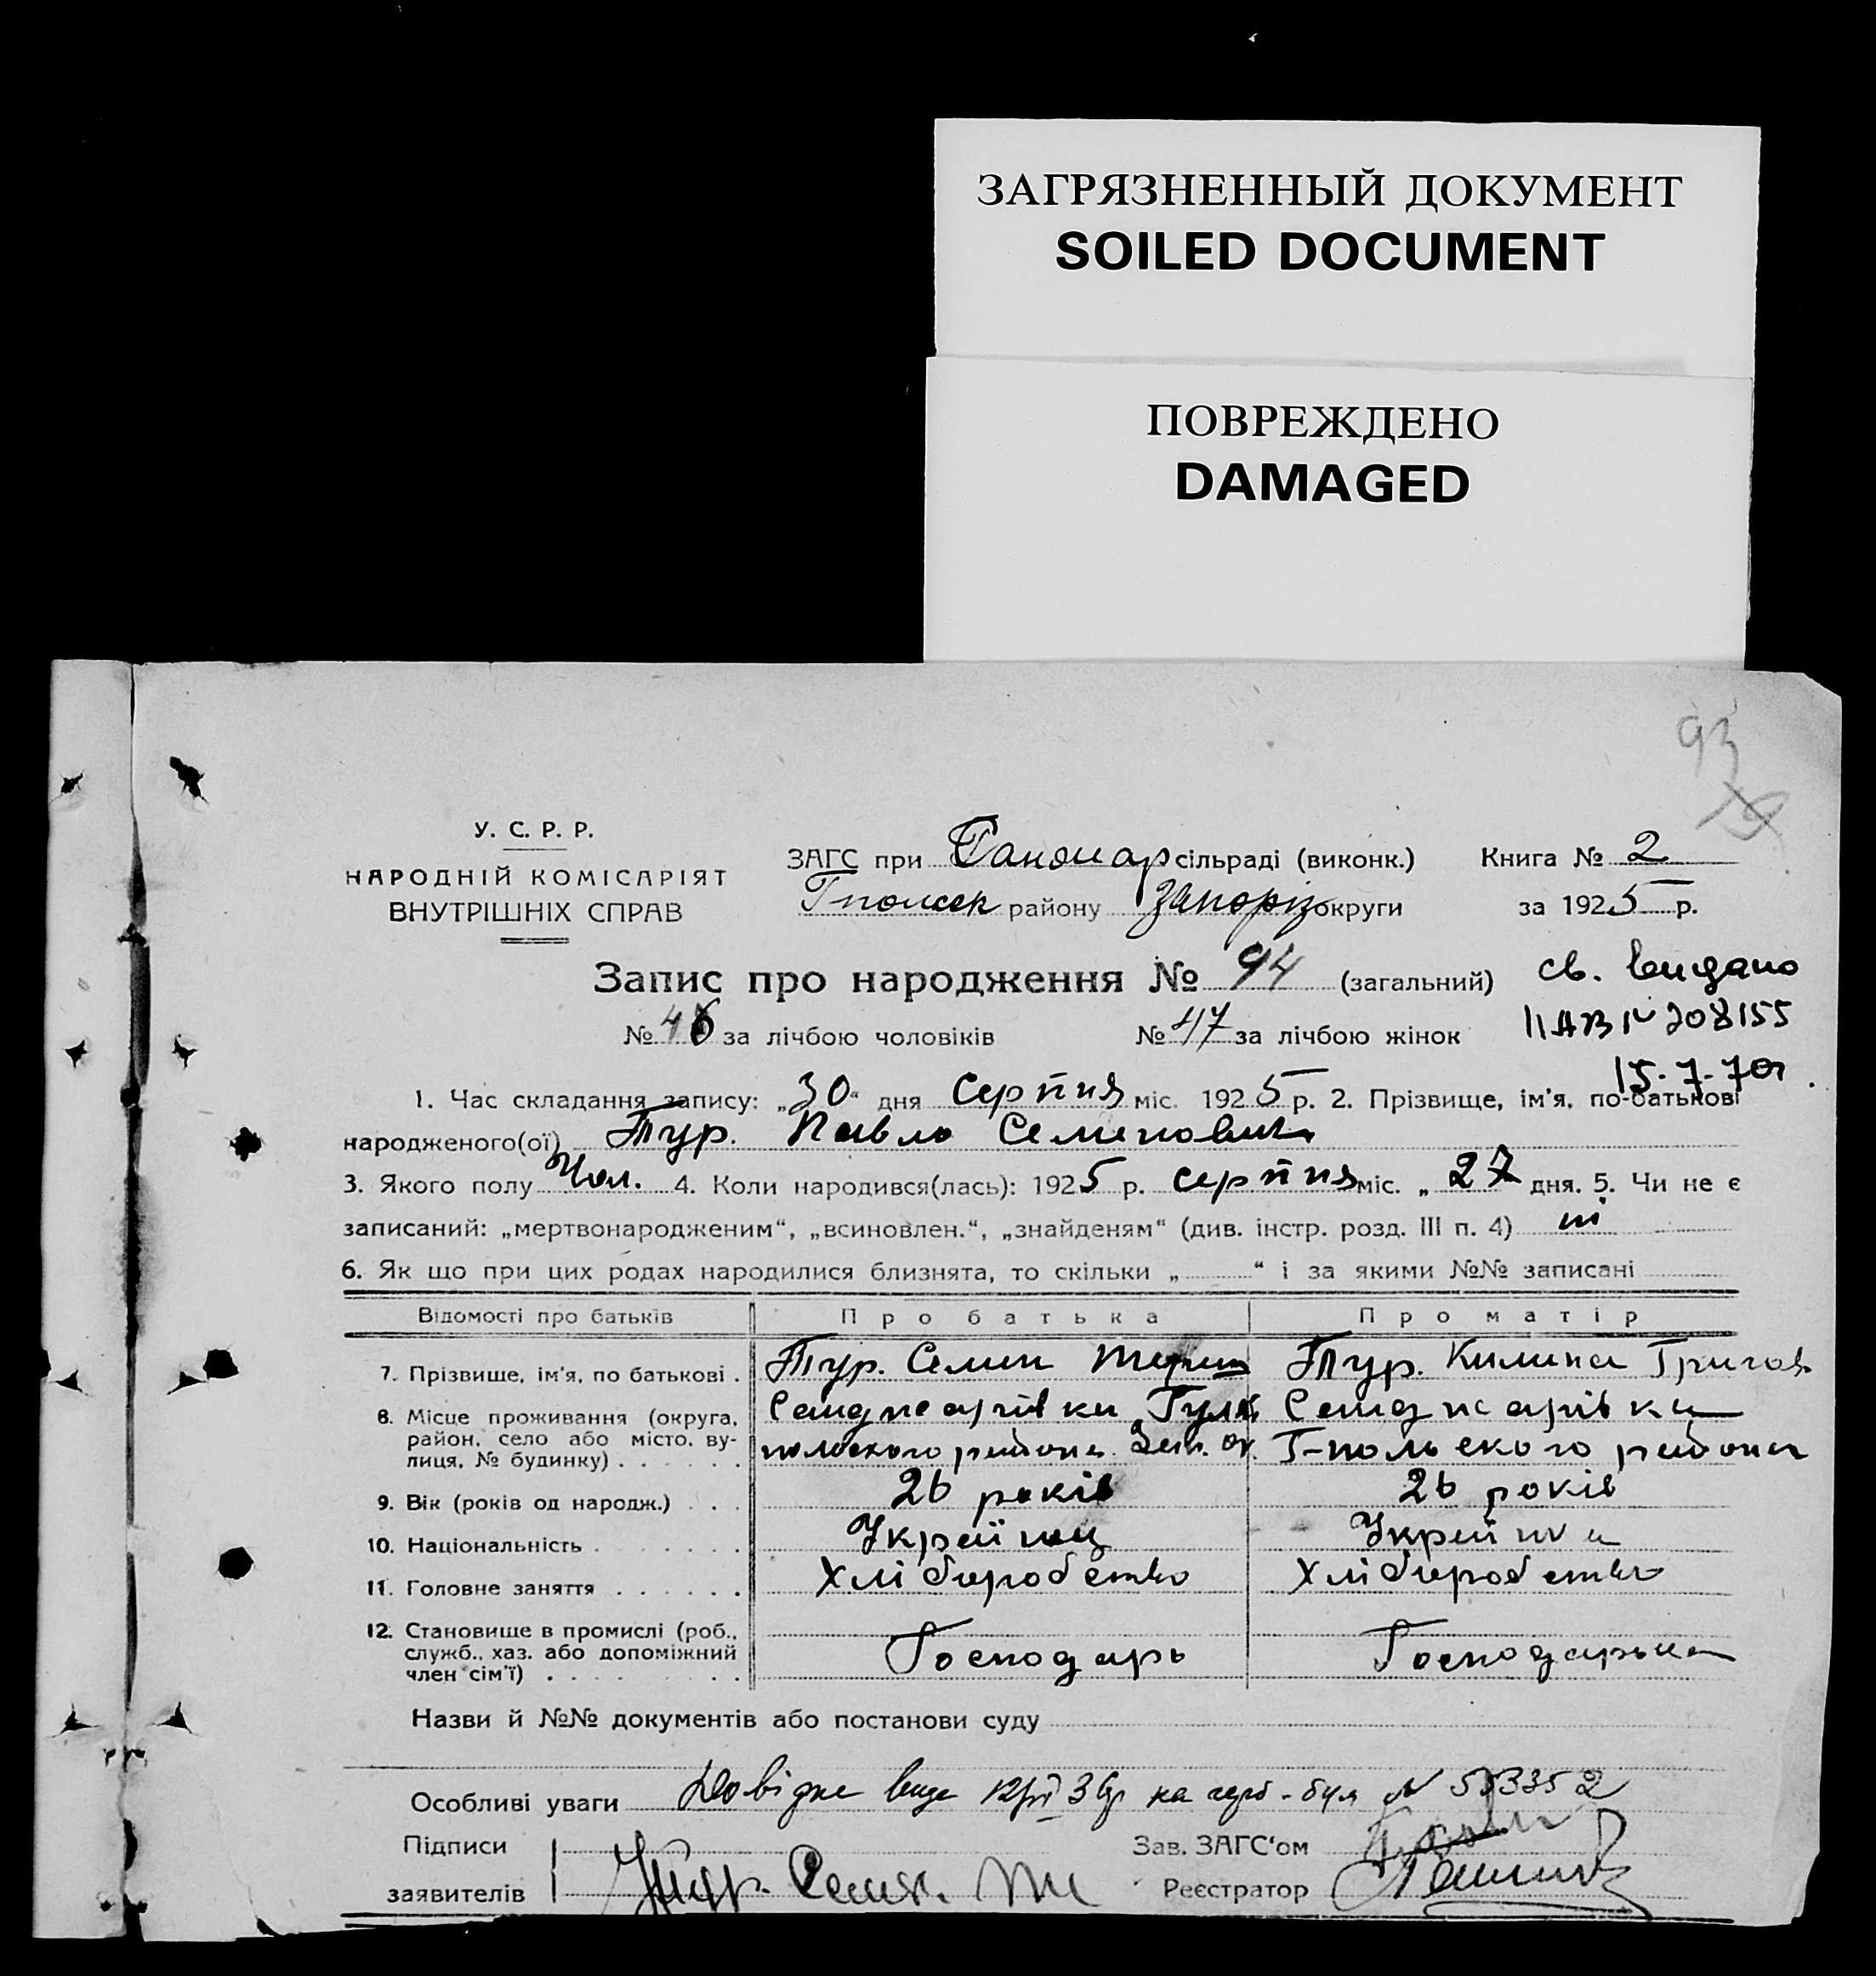 ЗАГРЯЗНЕННЫЙ ДОКУМЕНТ
SOILED DOCUMENT
ПОВРЕЖДЕНО
DAMAGED
93
У. С. Р. Р.
НАРОДНІЙ КОМІСАРІЯТ
ВНУТРІШНІХ СПРАВ
ЗАГС при сільраді (виконк.) Книга № 2
району Запоріз округи за 1925 р.
Запис про народження № 94 (загальний) св. видано
№ 46 за лічбою чоловіків № 47 за лічбою жінок 208155
15-7-70
1. Час складання запису: „30“ дня Серпня міс. 1925 р. 2. Прізвище, ім'я, по-батькові
народженого(ої) Тур. Павло Семенович
3. Якого полу Чол. 4. Коли народився(лась): 1925 р. серпня міс. „27 дня. 5. Чи не є
записаний: „мертвонародженим“, „всиновлен.“, „знайденям“ (див. інстр. розд. III п. 4) ні
6. Як що при цих родах народилися близнята, то скільки „ “ і за якими №№ записані
Відомості про батьків Про батька Про матір
7. Прізвище, ім'я, по батькові . Тур. Семен Тур. Килина Григов
8. Місце проживання (округа,
район, село або місто, ву-
лиця, № будинку) . . . . . . польского района Зап. ок. Г-польского района
9. Вік (років од народж.) . . . 26 років 26 років
10. Національність . . . . . . . Україн
11. Головне заняття . . . . . . Хліборобство Хліборобство
12. Становище в промислі (роб.,
служб., хаз. або допоміжний Господарь Господарька
член сім'ї) . . . . . . .
Назви й №№ документів або постанови суду
Особливі уваги на герб-бум N
Підписи Зав. ЗАГС'ом
заявителів Тур. Семен. Реєстратор